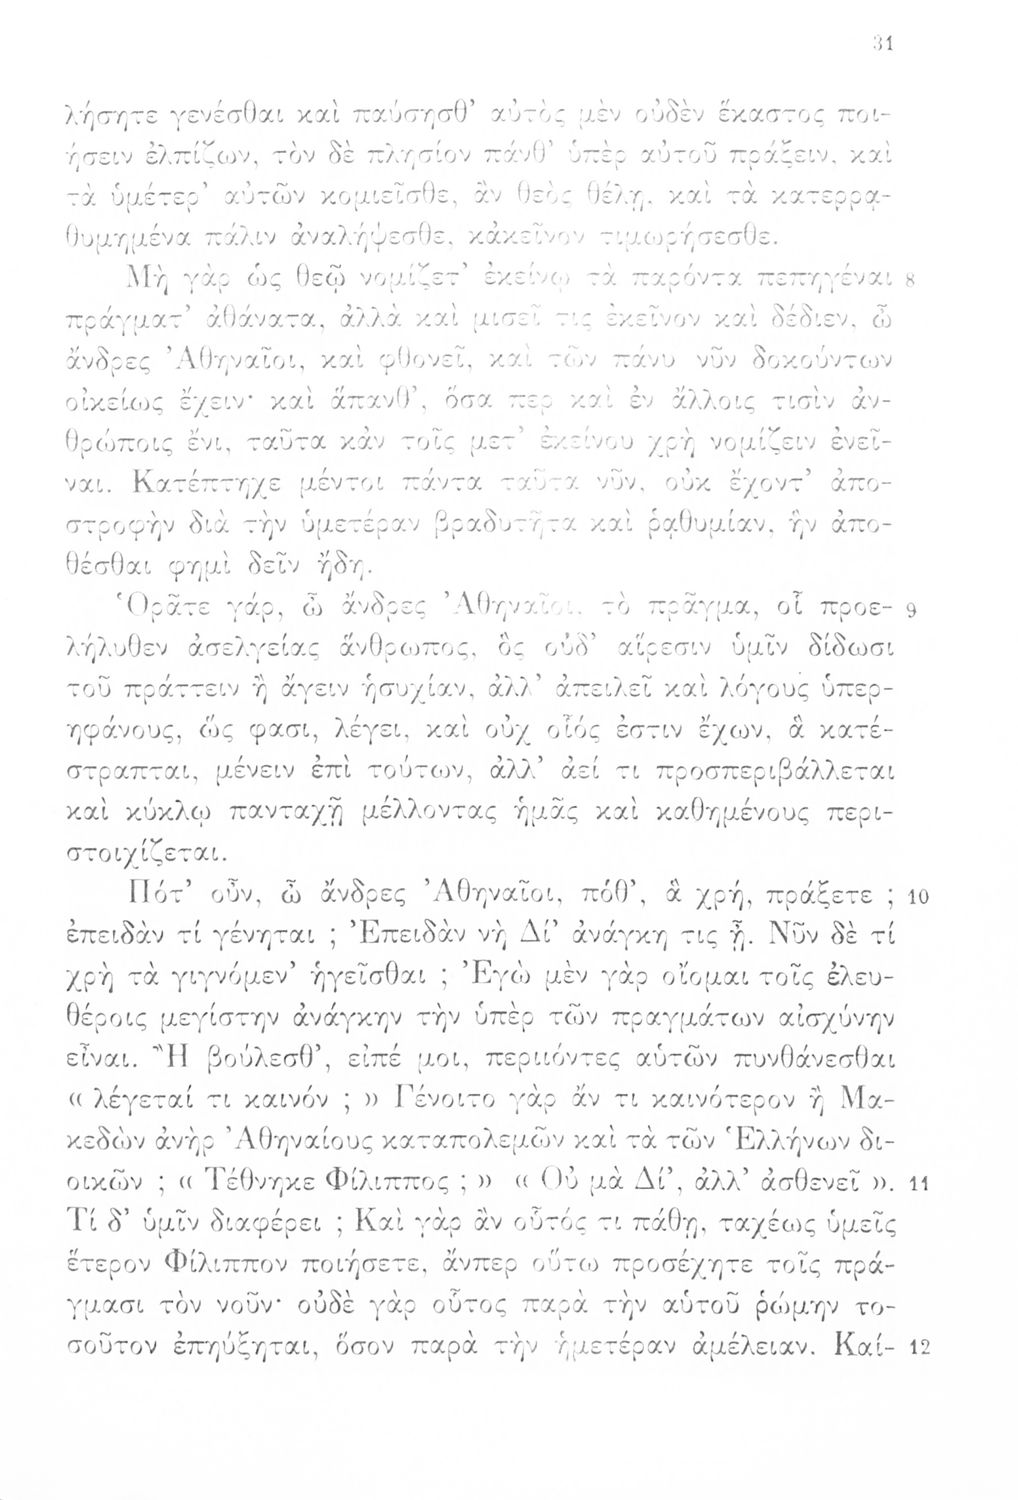 31
λήσητε γενέσθαι καὶ παύσησθ’ αὐτὸς μὲν οὐδὲν ἕκαστος ποι-
ήσειν ἐλπίζων, τὸν δὲ πλησίον πάνθ’ ὑπὲρ αὐτοῦ πράξειν, καὶ
τὰ ὑμέτερ’ αὐτῶν κομιεῖσθε, ἂν θεὸς θέλῃ, καὶ τὰ κατερρᾳ-
θυμημένα πάλιν ἀναλήψεσθε, κἀκεῖνον τιμωρήσεσθε.
Μὴ γὰρ ὡς θεῷ νομίζετ’ ἐκείνῳ τὰ παρόντα πεπηγέναι 8
πράγματ’ ἀθάνατα, ἀλλὰ καὶ μισεῖ τις ἐκεῖνον καὶ δέδιεν, ὦ
ἄνδρες Ἀθηναῖοι, καὶ φθονεῖ, καὶ τῶν πάνυ νῦν δοκούντων
οἰκείως ἔχειν· καὶ ἅπανθ’, ὅσα περ καὶ ἐν ἄλλοις τισὶν ἀν-
θρώποις ἔνι, ταῦτα κἀν τοῖς μετ’ ἐκείνου χρὴ νομίζειν ἐνεῖ-
ναι. Κατέπτηχε μέντοι πάντα ταῦτα νῦν, οὐκ ἔχοντ’ ἀπο-
στροφὴν διὰ τὴν ὑμετέραν βραδυτῆτα καὶ ῥᾳθυμίαν, ἣν ἀπο-
θέσθαι φημὶ δεῖν ἤδη.
Ὁρᾶτε γάρ, ὦ ἄνδρες Ἀθηναῖοι, τὸ πρᾶγμα, οἷ προε- 9
λήλυθεν ἀσελγείας ἅνθρωπος, ὃς οὐδ’ αἵρεσιν ὑμῖν δίδωσι
τοῦ πράττειν ἢ ἄγειν ἡσυχίαν, ἀλλ’ ἀπειλεῖ καὶ λόγους ὑπερ-
ηφάνους, ὥς φασι, λέγει, καὶ οὐχ οἷός ἐστιν ἔχων, ἃ κατέ-
στραπται, μένειν ἐπὶ τούτων, ἀλλ’ ἀεί τι προσπεριβάλλεται
καὶ κύκλῳ πανταχῇ μέλλοντας ἡμᾶς καὶ καθημένους περι-
στοιχίζεται.
Πότ’ οὖν, ὦ ἄνδρες Ἀθηναῖοι, πόθ’, ἃ χρή, πράξετε ; 10
ἐπειδὰν τί γένηται ; Ἐπειδὰν νὴ Δί’ ἀνάγκη τις ᾖ. Νῦν δὲ τί
χρὴ τὰ γιγνόμεν’ ἡγεῖσθαι ; Ἐγὼ μὲν γὰρ οἴομαι τοῖς ἐλευ-
θέροις μεγίστην ἀνάγκην τὴν ὑπὲρ τῶν πραγμάτων αἰσχύνην
εἶναι. Ἢ βούλεσθ’, εἰπέ μοι, περιιόντες αὑτῶν πυνθάνεσθαι
« λέγεταί τι καινόν ; » Γένοιτο γὰρ ἄν τι καινότερον ἢ Μα-
κεδὼν ἀνὴρ Ἀθηναίους καταπολεμῶν καὶ τὰ τῶν Ἑλλήνων δι-
οικῶν ; « Τέθνηκε Φίλιππος ; » « Οὐ μὰ Δί’, ἀλλ’ ἀσθενεῖ ». 11
Τί δ’ ὑμῖν διαφέρει ; Καὶ γὰρ ἂν οὗτός τι πάθῃ, ταχέως ὑμεῖς
ἕτερον Φίλιππον ποιήσετε, ἄνπερ οὕτω προσέχητε τοῖς πρά-
γμασι τὸν νοῦν· οὐδὲ γὰρ οὗτος παρὰ τὴν αὑτοῦ ῥώμην το-
σοῦτον ἐπηύξηται, ὅσον παρὰ τὴν ἡμετέραν ἀμέλειαν. Καί- 12